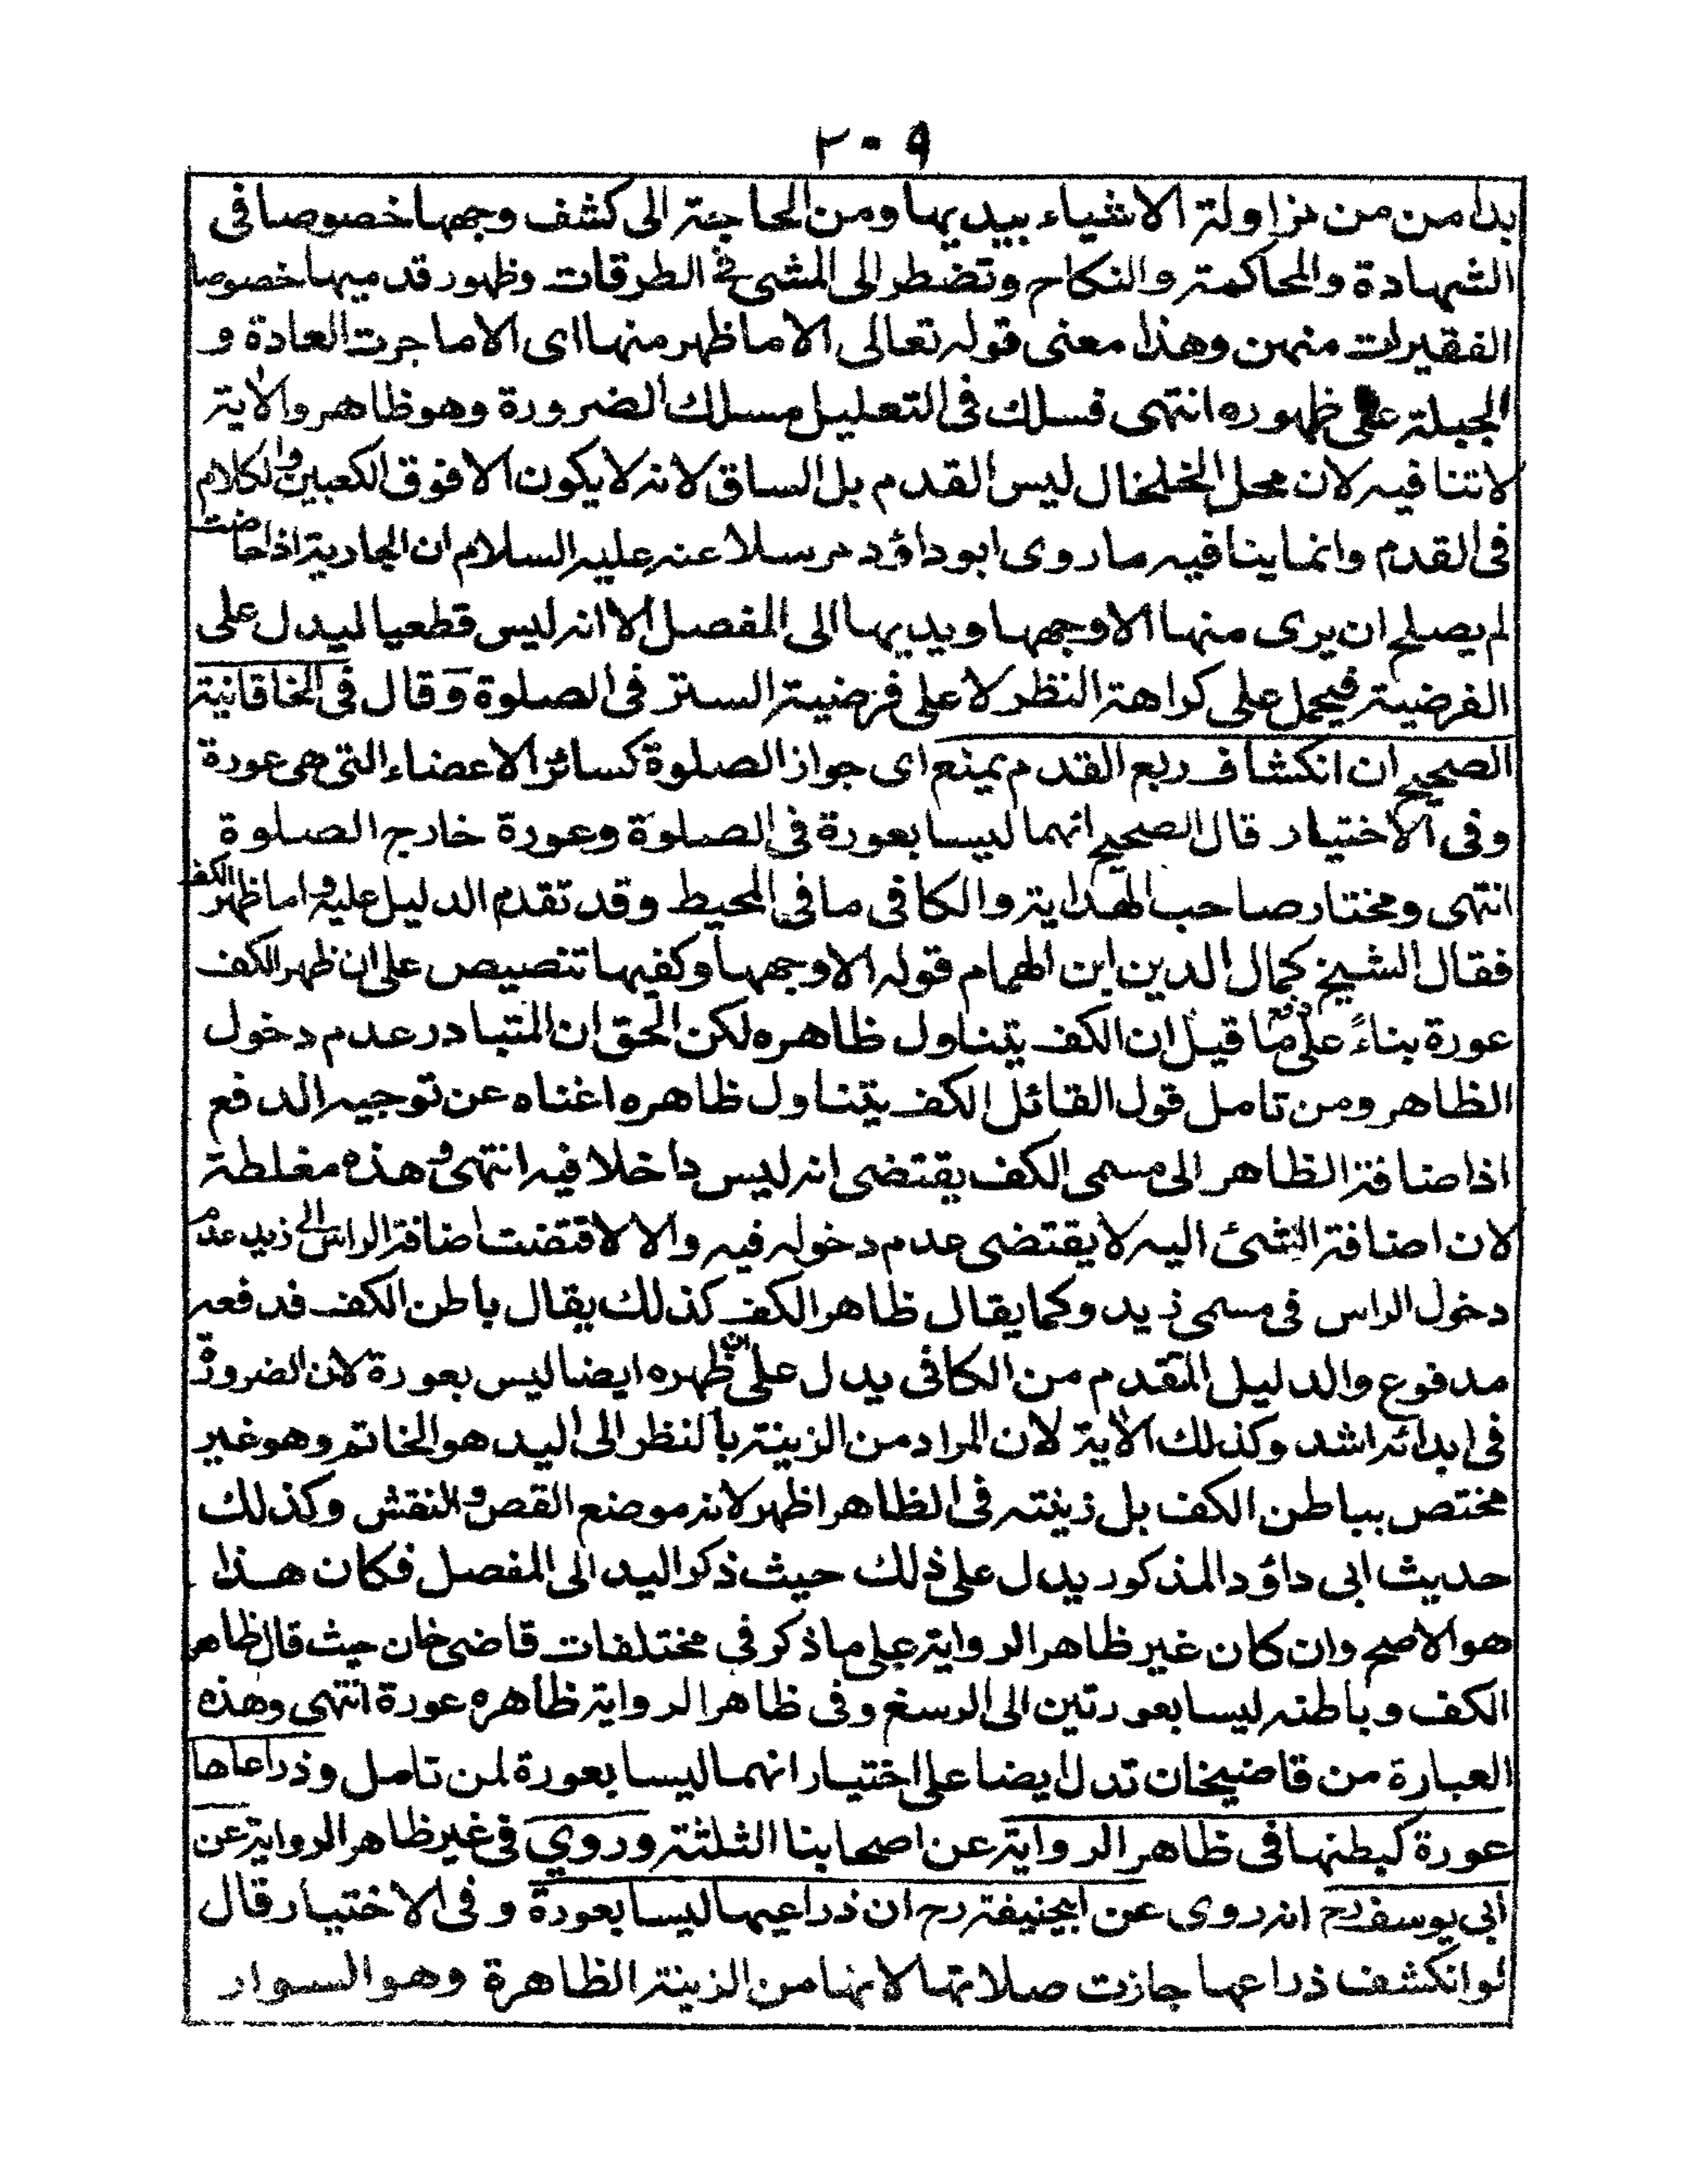 ٢٠٩
بدا من من نزاولة الاشياء بيديها ومن الحاجة الى كشف وجهها خصوصا فى
الشهادة والمحاكمة والنكاح وتضطر الى المشى فى الطرقات وظهور قدميها خصوصا
الفقيرات منهن وهذا معنى قوله تعالى الا ما ظهر منها اى الا ما جرت العادة و
الجبلة على ظهوره انتهى فسلك فى التعليل مسلك الضرورة وهو ظاهر والآية
لا تنافيه لان محل الخلخال ليس القدم بل الساق لانه لا يكون الا فوق الكعبين والكلام
فى القدم وانما ينافيه ما روى ابو داؤد مرسلا عنه عليه السلام ان الجارية اذا حاضت
لم يصلح ان يرى منها الا وجهها ويديها الى المفصل الا انه ليس قطعيا ليدل على
الفرضية فيحمل على كراهة النظر لا على فرضية الستر فى الصلوة وقال فى الخاقانية
الصحيح ان انكشاف ربع القدم يمنع اى جواز الصلوة كسائر الاعضاء التى هى عورة
وفى الاختيار قال الصحيح انهما ليسا بعورة فى الصلوة وعورة خارج الصلوة
انتهى ومختار صاحب الهداية والكافى ما فى المحيط وقد تقدم الدليل عليه واما ظهر الكف
فقال الشيخ كمال الدين ابن الهمام قوله الا وجهها وكفيها تنصيص على ان ظهر الكف
عورة بناءً على دفع ما قيل ان الكف يتناول ظاهره لكن الحق ان المتبادر عدم دخول
الظاهر ومن تامل قول القائل الكف يتناول ظاهره اغناه عن توجيه الدفع
اذ اضافة الظاهر الى مسمى الكف يقتضى انه ليس داخلا فيه انتهى وهذه مغلطة
لان اضافة الشئ اليه لا يقتضى عدم دخوله فيه والا لاقتضت اضافة الراس الى زيد عدم
دخول الراس فى مسمى زيد وكما يقال ظاهر الكف كذلك يقال باطن الكف فدفعه
مدفوع والدليل المتقدم من الكافى يدل على ان ظهره ايضا ليس بعورة لان الضرورة
فى ابدائه اشد وكذلك الآية لان المراد من الزينة بالنظر الى اليد هو الخاتم وهو غير
مختص بباطن الكف بل زينته فى الظاهر اظهر لانه موضع الفص والنقش وكذلك
حديث ابى داؤد المذكور يدل على ذلك حيث ذكر اليد الى المفصل فكان هذا
هو الاصح وان كان غير ظاهر الرواية على ما ذكر فى مختلفات قاضى خان حيث قال ظاهر
الكف وباطنه ليسا بعورتين الى الرسغ وفى ظاهر الرواية ظاهره عورة انتهى وهذه
العبارة من قاضيخان تدل ايضا على اختيار انهما ليسا بعورة لمن تامل وذراعاها
عورة كبطنها فى ظاهر الرواية عن اصحابنا الثلثة وروي فى غير ظاهر الرواية عن
ابى يوسف رح انه روى عن ابيحنيفة رح ان ذراعيها ليسا بعورة وفى الاختيار قال
لو انكشف ذراعها جازت صلاتها لانها من الزينة الظاهرة وهو السوار